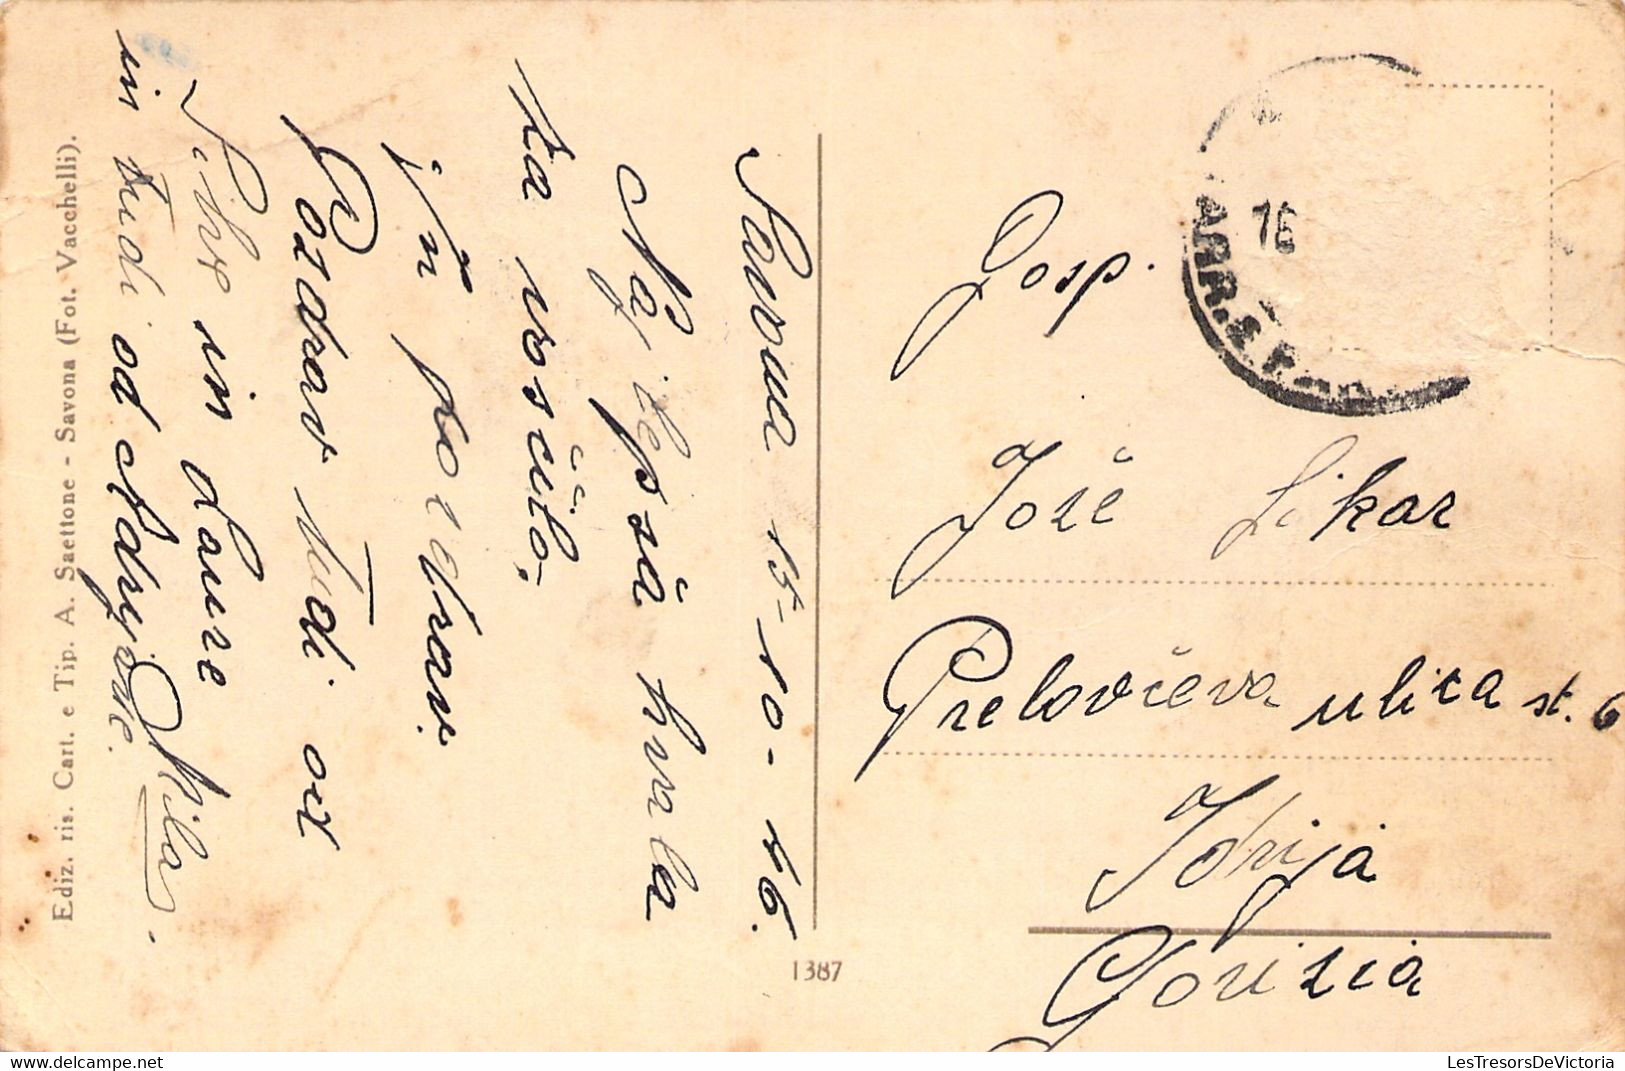 Savona 15-10-46.
Najlepša hvala
za voščilo.
in pozdrav.
Pozdrav tudi od
Silve in Laure
in tudi od Adrijane.
Mila
Ediz. ris. Cart. e Tip. A. Saettone - Savona (Fot. Vacchelli).
1387
ARR.
16
Gosp.
Jože Likar
Prelovčeva ulica št. 6
Idrija
Gorizia
LesTresorsDeVictoria